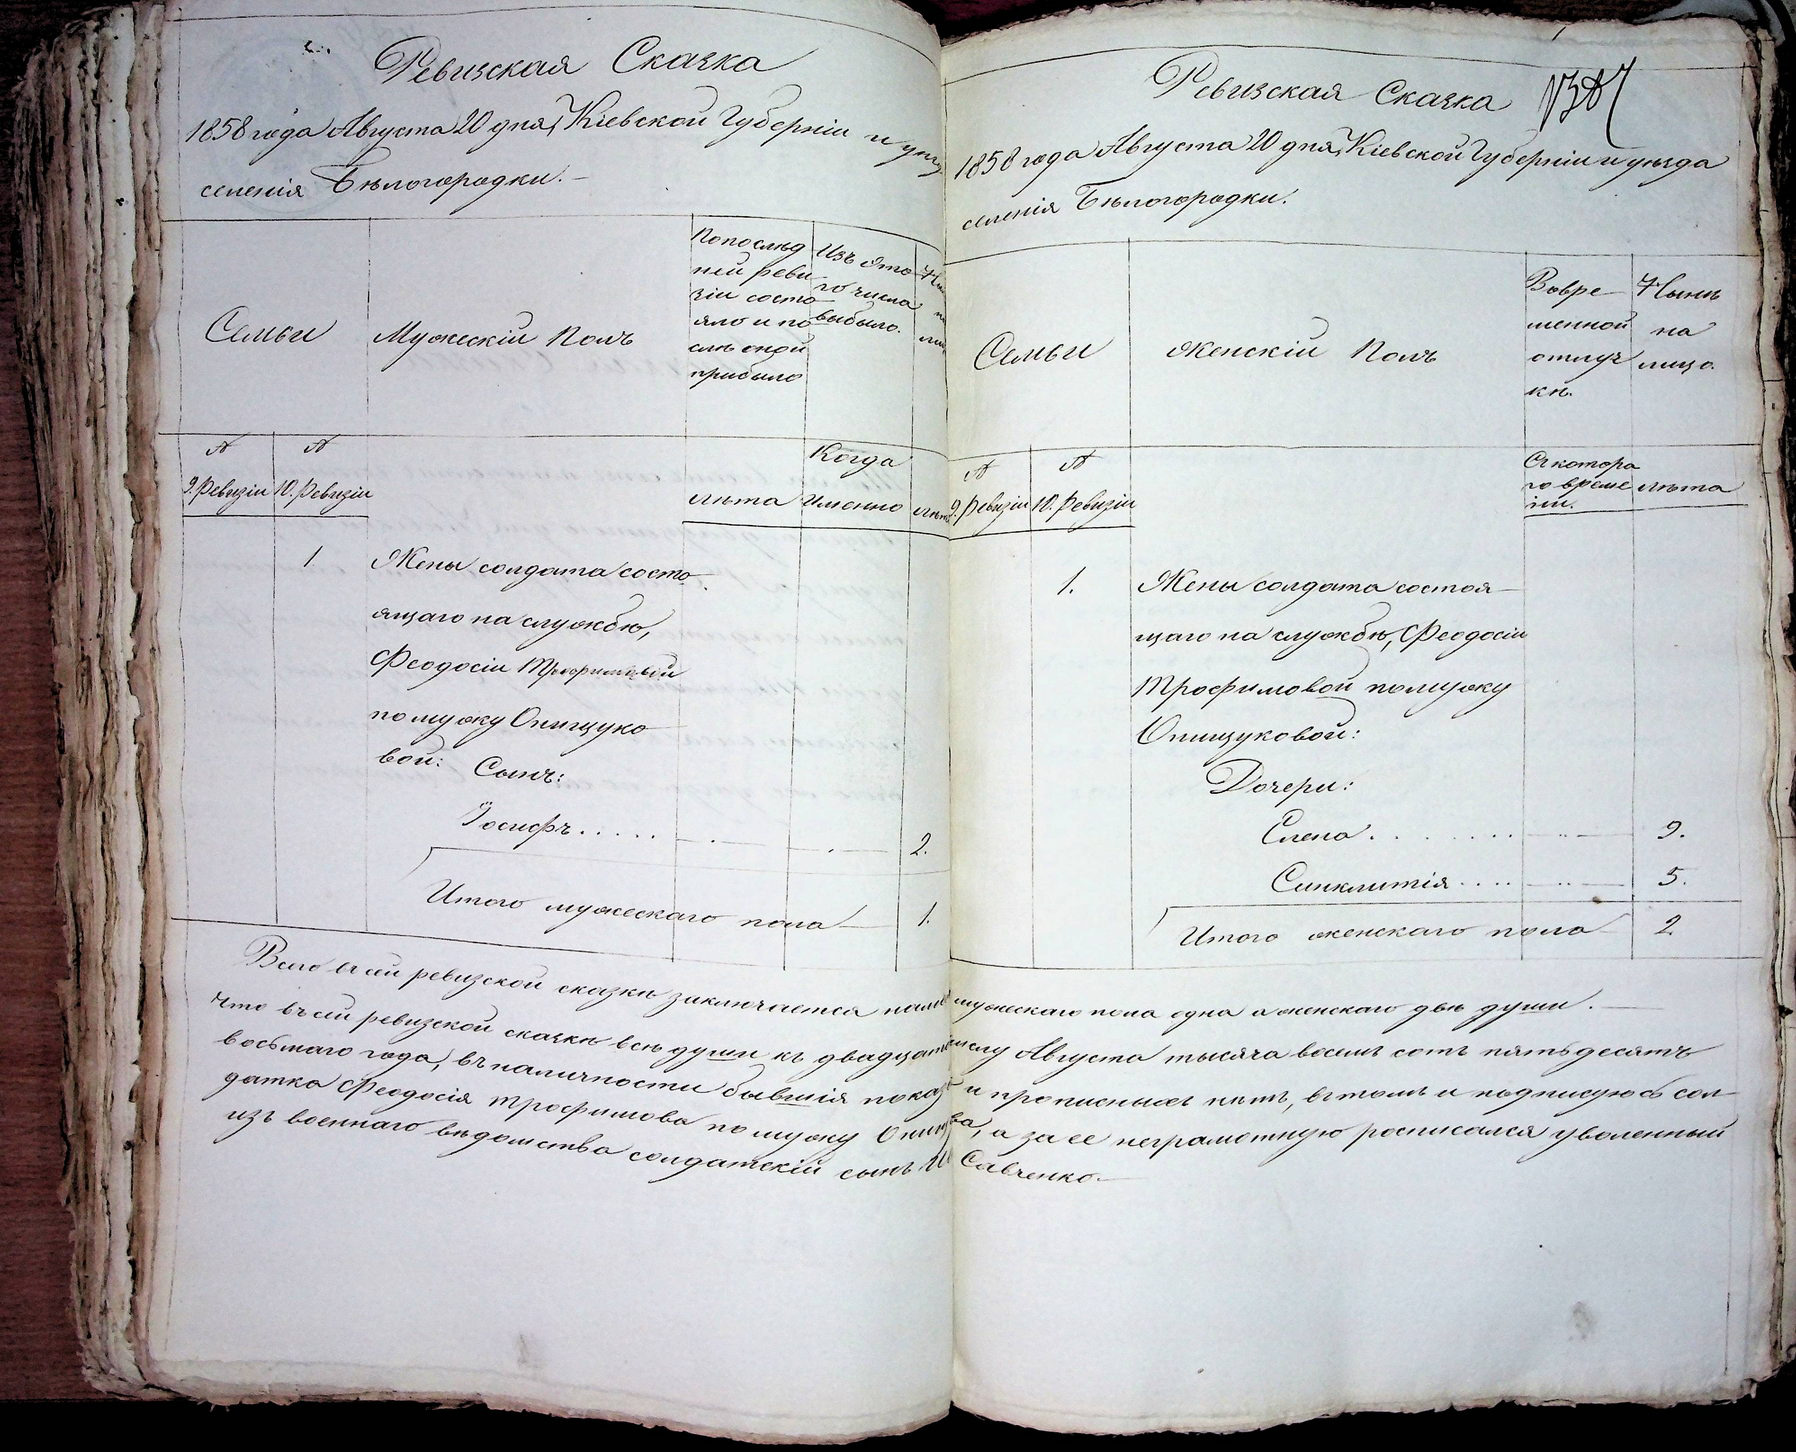 Ревизская Сказка
1858 года Августа 20 дня, Кіевской Губерніи и уѣз
селенія Бѣлогородки.
Семьи
Мужескій Полъ
По послѣд
ней реви
зіи состо
яло и по
слѣ оной
прибыло
Изъ Это
го числа
выбыло.
№
9. Ревизіи
№
10. Ревизіи
лѣта
Когда
именно
Лѣт
1.
Жены солдата состо
ящаго на службѣ,
Феодосіи Трофимовой
по мужу Онищуко
вой: Сынъ:
Іосифъ..... 2.
Итого мужескаго пола 1.
Ревизская Сказка
1858 года Августа 20 дня, Кіевской Губерніи и уѣзда
селенія Бѣлогородки.
Семьи
Женскій Полъ
Вовре
менной
отлуч
кѣ.
Нынѣ
на
лицо.
№
9. Ревизіи
№
10. Ревизіи
Съ котора
го време
ни.
лѣта
1.
Жены солдата состоя
щаго на службѣ, Феодосіи
Трофимовой по мужу
Онищуковой:
Дочери:
Елена. 9.
Синклитія.... 5.
Итого женскаго пола 2.
Всего въ сей ревизской сказкѣ заключается мужескаго пола одна а женскаго двѣ души.
Что въ сей ревизской сказкѣ всѣ души къ двадцат числу Августа тысяча восемь сотъ пятьдесятъ
восьмаго года, въ наличности бывшія показ и прописныхъ нѣтъ, въ томъ и подписуюсь сол
датка Феодосія Трофимова по мужу Онищ ва, а за ее неграмотную росписался уволенный
изъ военнаго вѣдомства солдатскій сынъ Савченко.